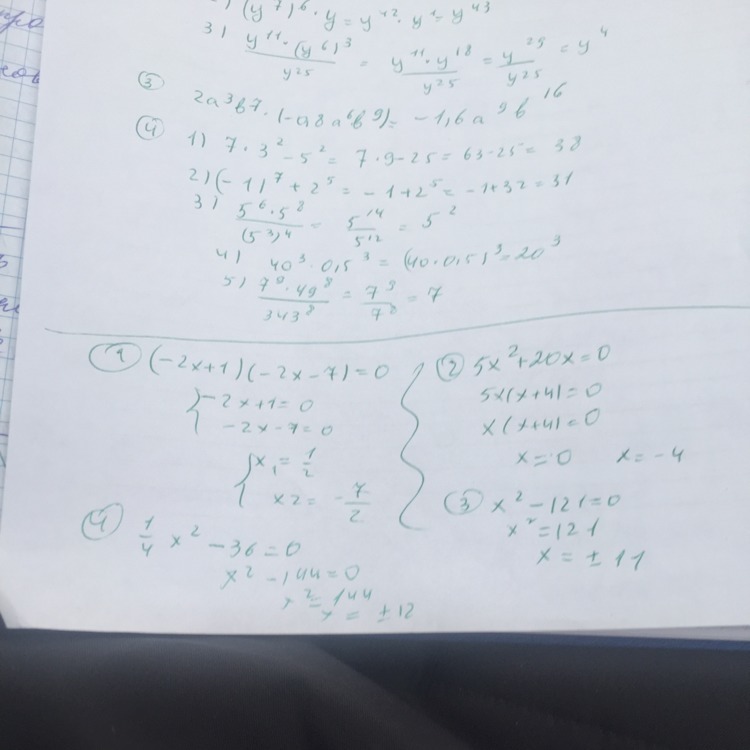 (y⁷)⁶ · y = y⁴² · y¹ = y⁴³
3) y¹¹ · (y⁶)³ / y²⁵ = y¹¹ · y¹⁸ / y²⁵ = y²⁹ / y²⁵ = y⁴
③ 2a³b⁷ · (-0,8a⁶b⁹) = -1,6a⁹b¹⁶
④ 1) 7 · 3² - 5² = 7 · 9 - 25 = 63 - 25 = 38
2) (-1)⁷ + 2⁵ = -1 + 2⁵ = -1 + 32 = 31
3) 5⁶ · 5⁸ / (5³)⁴ = 5¹⁴ / 5¹² = 5²
4) 40³ · 0,5³ = (40 · 0,5)³ = 20³
5) 7⁹ · 49⁸ / 343⁸ = 7⁹ / 7⁸ = 7
① (-2x+1)(-2x-7)=0
-2x+1=0
-2x-7=0
x₁ = 1/2
x2 = -7/2
② 5x²+20x=0
5x(x+4)=0
x(x+4)=0
x=0 x=-4
③ x²-121=0
x²=121
x=±11
④ 1/4 x² - 36=0
x²-144=0
x²=144
x=±12